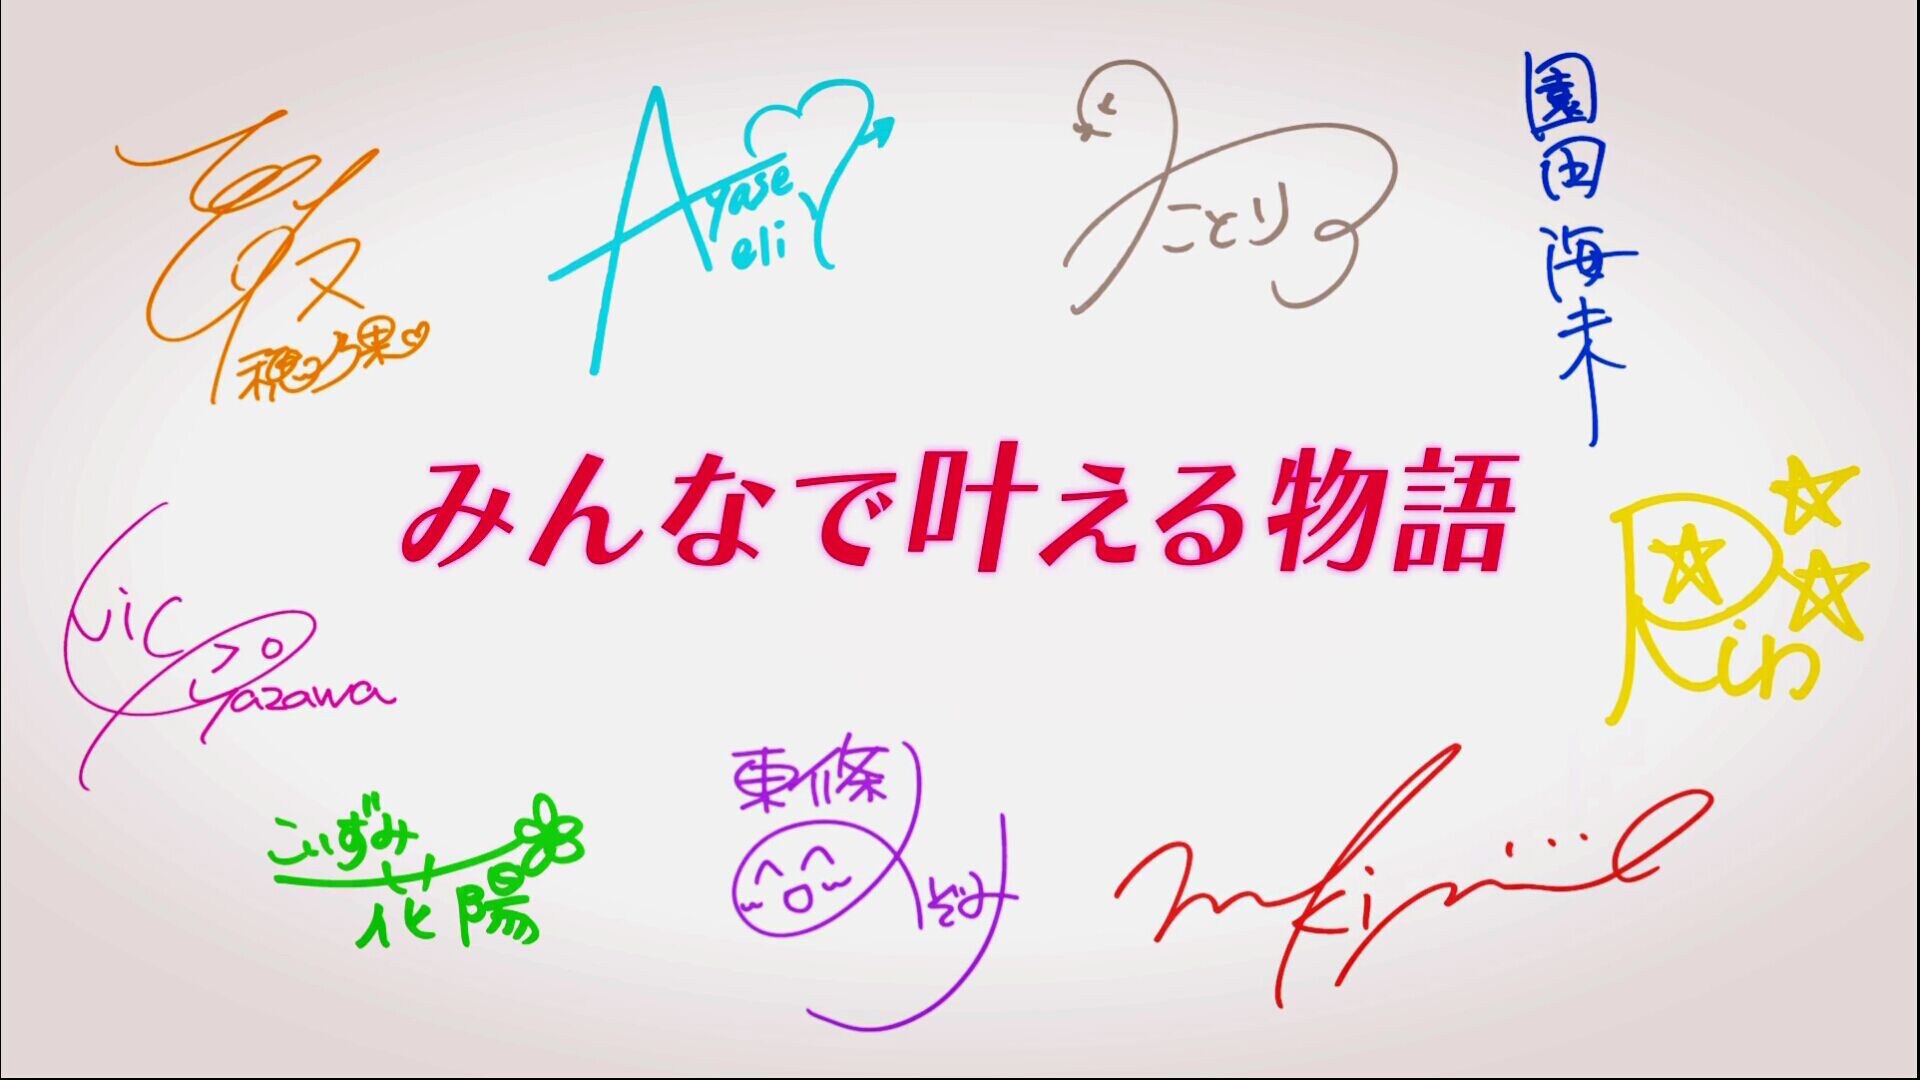 穂乃果
Ayase
eli
ことり
園田海未
みんなで叶える物語
Nico
Yazawa
Rin
こいずみ
花陽
東條
のぞみ
maki